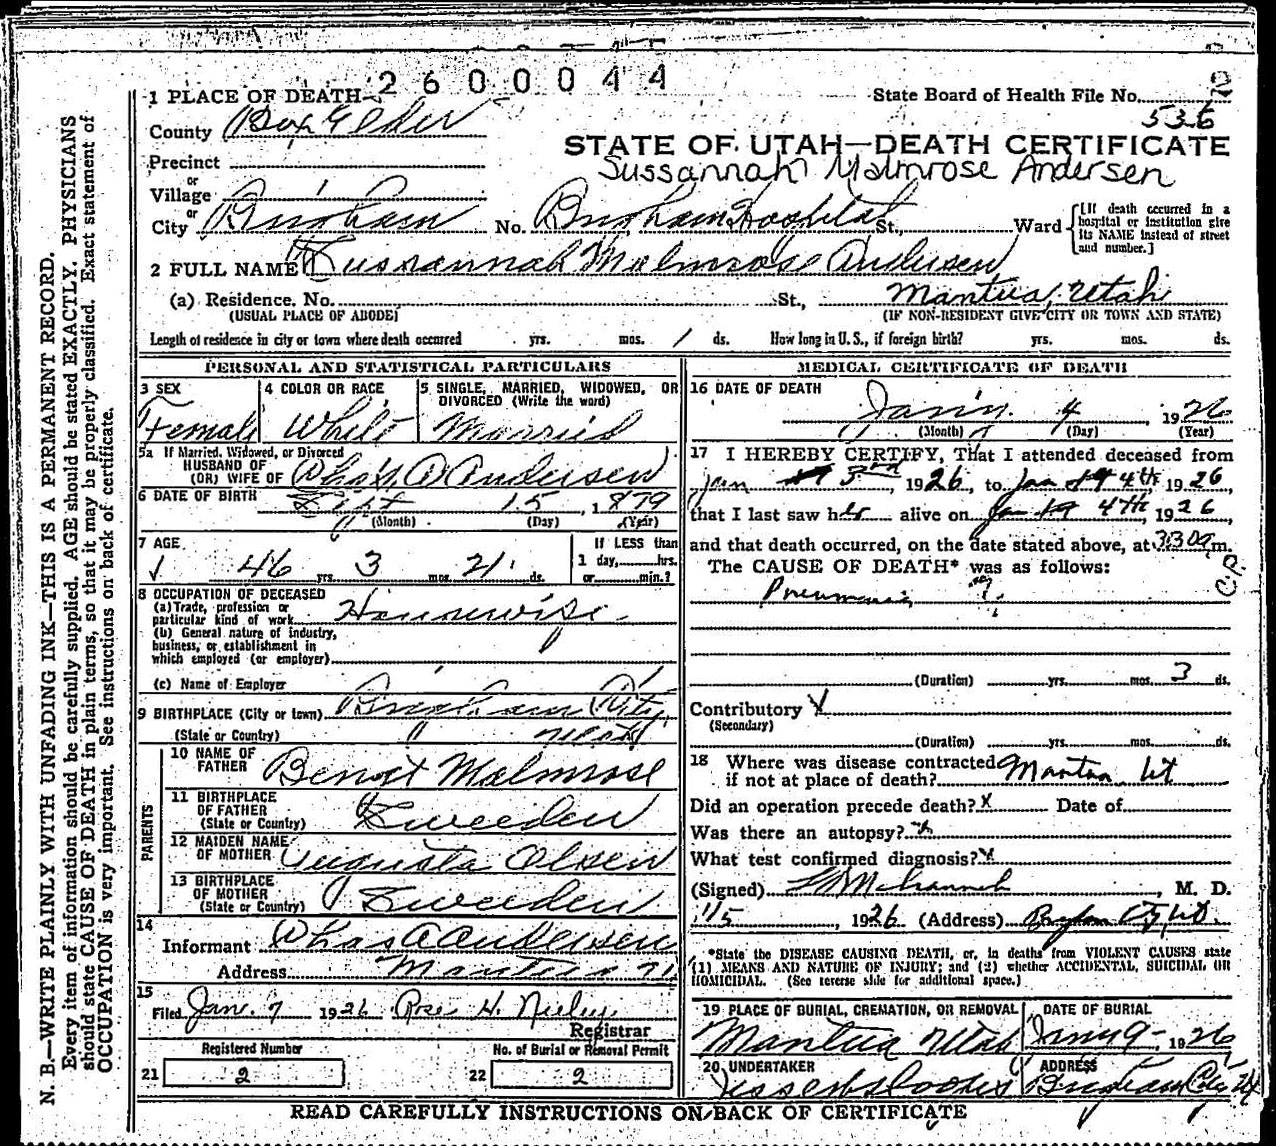 2600044
1 PLACE OF DEATH
State Board of Health File No. 536
County Box Elder
STATE OF UTAH—DEATH CERTIFICATE
Precinct
Sussannah Malmrose Andersen
or
Village
or
City Brigham No. Brigham Hospital St., Ward
[If death occurred in a
hospital or institution give
its NAME instead of street
and number.]
2 FULL NAME Sussannah Malmrose Andersen
(a) Residence. No. St., Mantua, Utah
(USUAL PLACE OF ABODE) (IF NON-RESIDENT GIVE CITY OR TOWN AND STATE)
Length of residence in city or town where death occurred yrs. mos. 1 ds. How long in U. S., if foreign birth? yrs. mos. ds.
PERSONAL AND STATISTICAL PARTICULARS
3 SEX 4 COLOR OR RACE 5 SINGLE, MARRIED, WIDOWED, OR
DIVORCED (Write the word)
Female White Married
5a If Married, Widowed, or Divorced
HUSBAND OF
(OR) WIFE OF Chas. A Andersen
6 DATE OF BIRTH Sept 15, 1879
(Month) (Day) (Year)
7 AGE If LESS than
46 yrs. 3 mos. 21 ds. 1 day, hrs.
or min.?
8 OCCUPATION OF DECEASED
(a) Trade, profession or
particular kind of work Housewife
(b) General nature of industry,
business, or establishment in
which employed (or employer)
(c) Name of Employer
9 BIRTHPLACE (City or town) Brigham City
(State or Country) " Utah
PARENTS
10 NAME OF
FATHER Benoit Malmrose
11 BIRTHPLACE
OF FATHER
(State or Country) Sweeden
12 MAIDEN NAME
OF MOTHER Augusta Olsen
13 BIRTHPLACE
OF MOTHER
(State or Country) Sweeden
14
Informant Chas A Andersen
Address Mantua U
15
Filed Jan. 7 1926 Rose H. Neeley
Registrar
Registered Number No. of Burial or Removal Permit
21 2 22 2
MEDICAL CERTIFICATE OF DEATH
16 DATE OF DEATH
Janry. 4 1926
(Month) (Day) (Year)
17 I HEREBY CERTIFY, That I attended deceased from
Jan 3rd, 1926, to Jan 4th, 1926,
that I last saw her alive on Jan 4th, 1926,
and that death occurred, on the date stated above, at 3:30 a m.
The CAUSE OF DEATH* was as follows:
Pneumonia
C.P.
(Duration) yrs. mos. 3 ds.
Contributory
(Secondary)
(Duration) yrs. mos. ds.
18 Where was disease contracted
if not at place of death? Mantua Ut
Did an operation precede death? x Date of
Was there an autopsy? x
What test confirmed diagnosis?
(Signed) , M. D.
1/5, 1926 (Address) Brigham City Ut.
*State the DISEASE CAUSING DEATH, or, in deaths from VIOLENT CAUSES state
(1) MEANS AND NATURE OF INJURY; and (2) whether ACCIDENTAL, SUICIDAL OR
HOMICIDAL. (See reverse side for additional space.)
19 PLACE OF BURIAL, CREMATION, OR REMOVAL DATE OF BURIAL
Mantua Utah Janry 9- 1926
20 UNDERTAKER ADDRESS
Brigham City Ut
READ CAREFULLY INSTRUCTIONS ON BACK OF CERTIFICATE
N. B.—WRITE PLAINLY WITH UNFADING INK—THIS IS A PERMANENT RECORD.
Every item of information should be carefully supplied. AGE should be stated EXACTLY. PHYSICIANS
should state CAUSE OF DEATH in plain terms, so that it may be properly classified. Exact statement of
OCCUPATION is very important. See instructions on back of certificate.